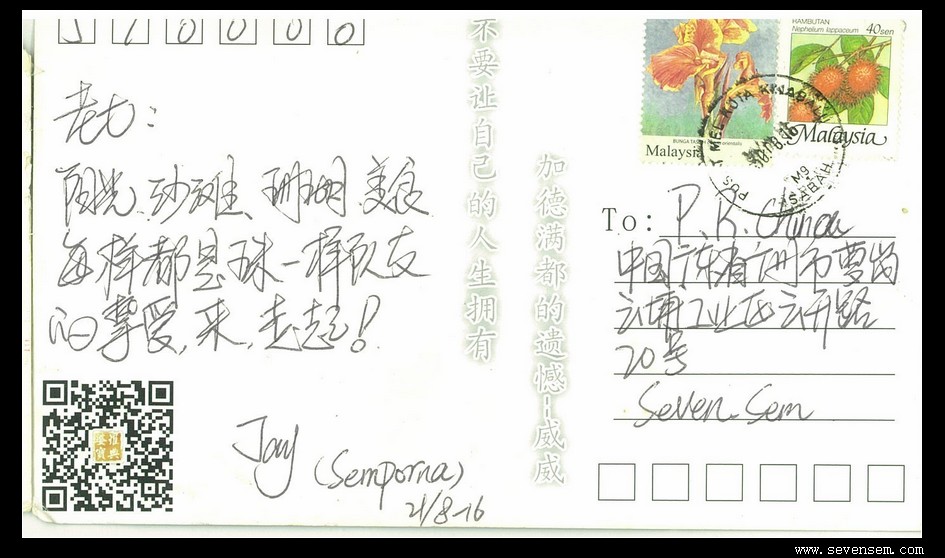 510000
老七:
阳光、沙滩、珊瑚、美食
每样都是
一样
的享受,来,走起!
Jay
(Semporna)
21/8-16
不要让自己的人生拥有
加德满都的遗憾--威威
Malaysia
RAMBUTAN
Nephelium lappaceum
40sen
Malaysia
POS
MEL KOTA KINABALU
SABAH
To: P.R.China
中国广东省广州市萝岗
云埔工业区云开路
20号
Seven.Sem
www.sevensem.com